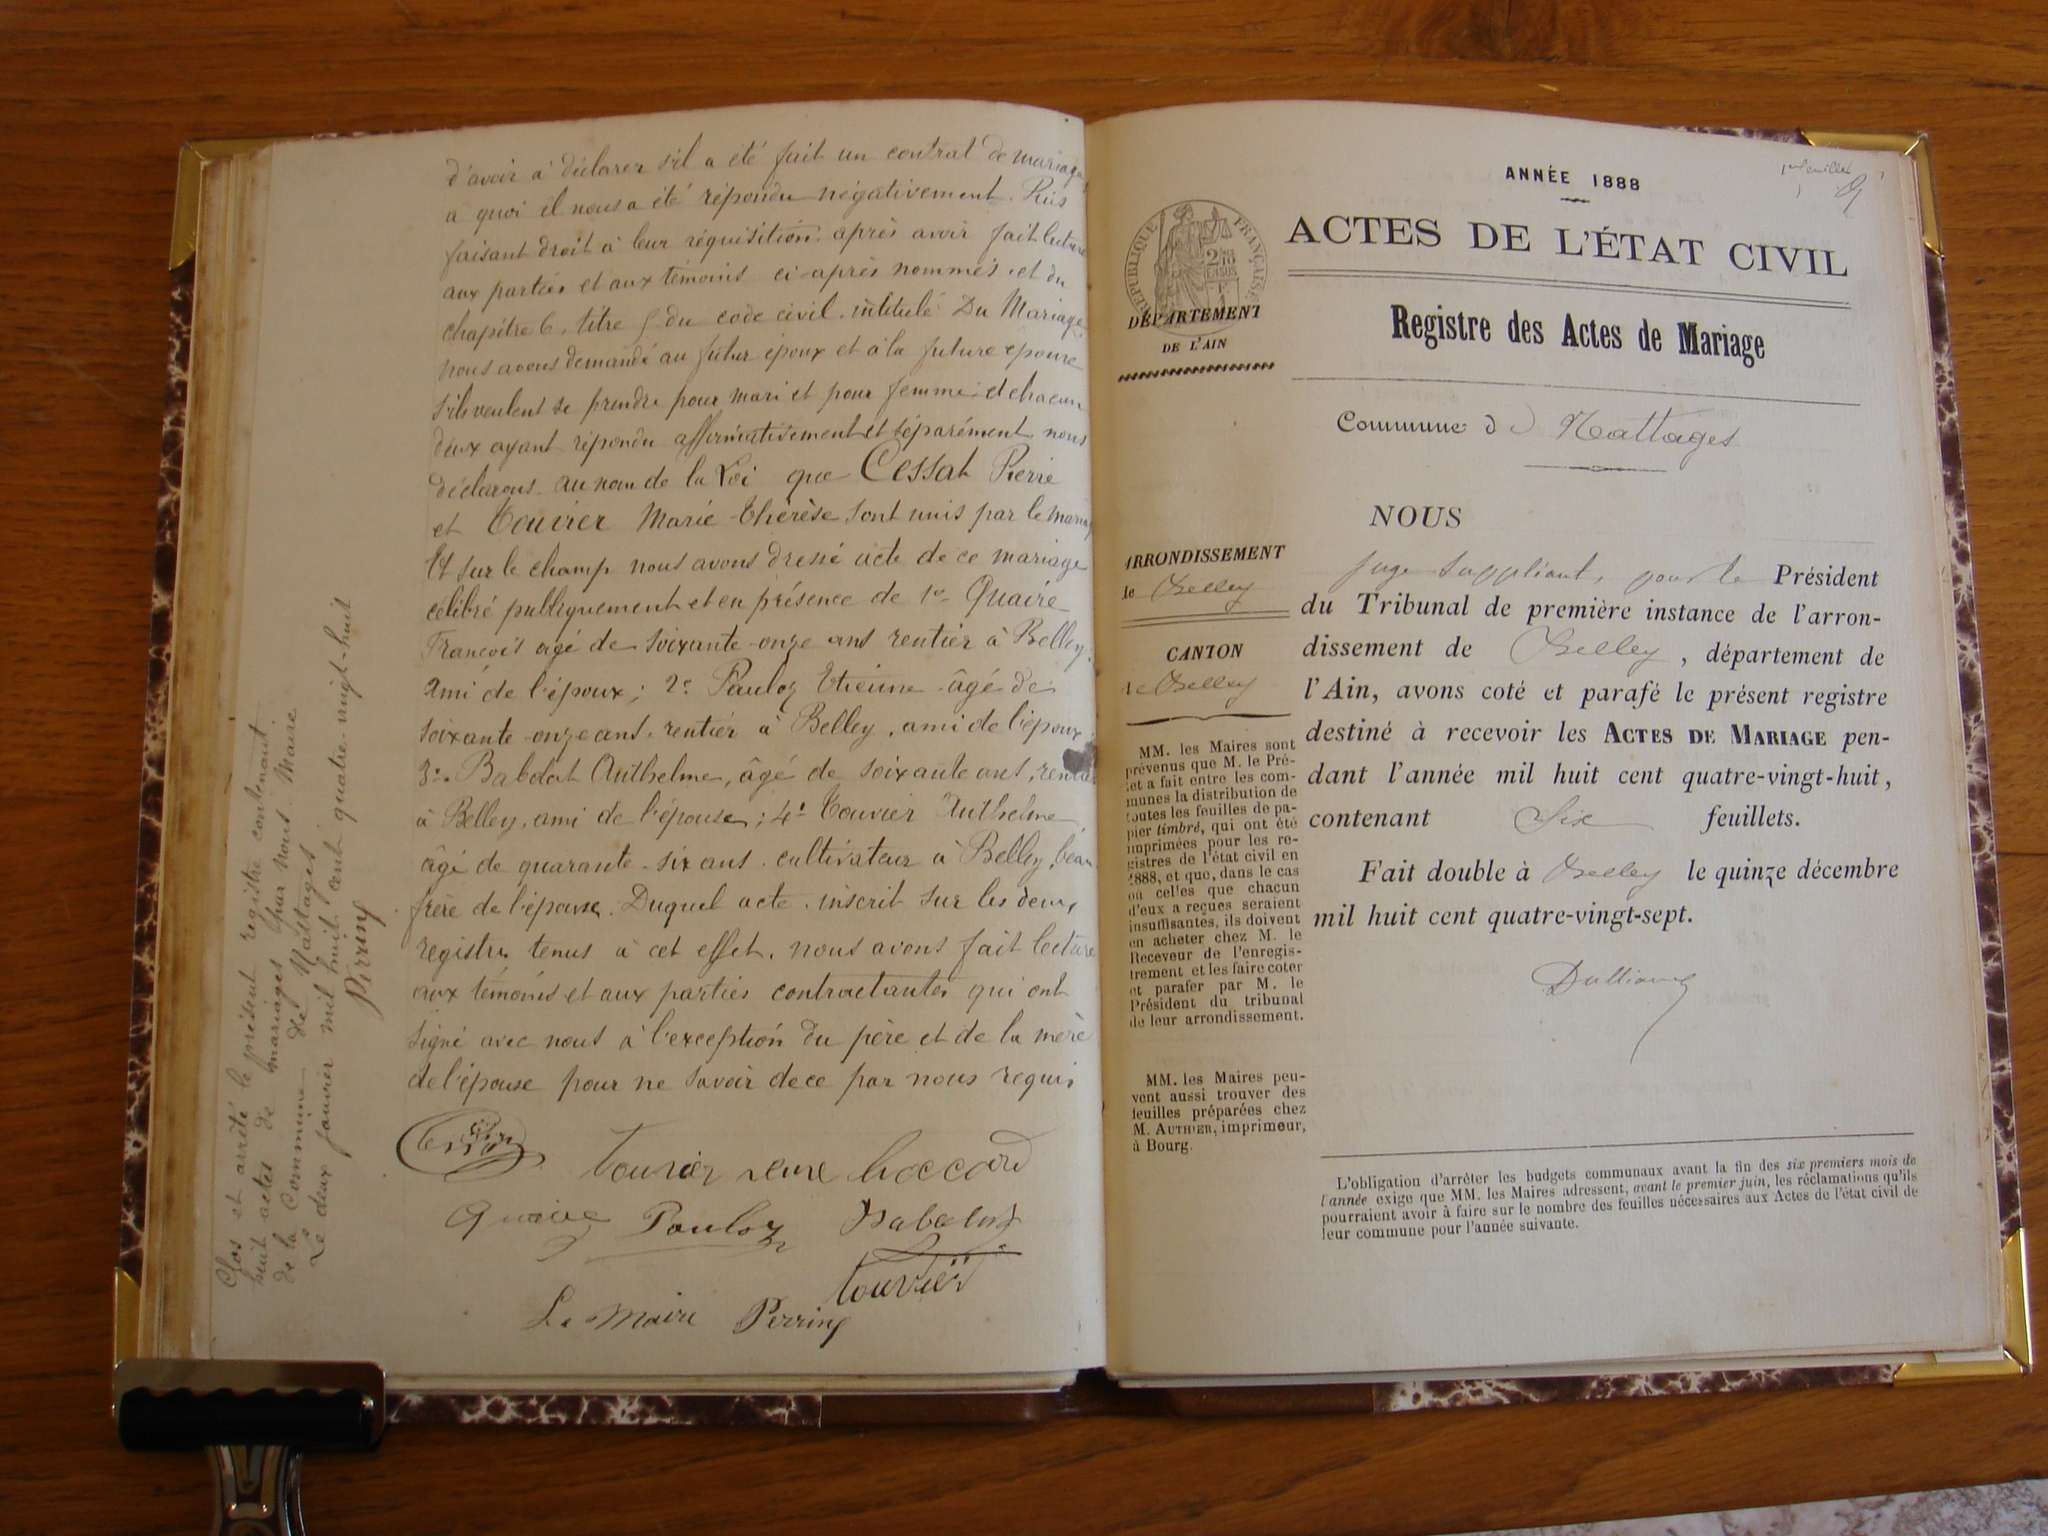 d'avoir à déclarer s'il a été fait un contrat de mariage
a quoi il nous a été répondu négativement. Puis
faisant droit à leur réquisition. après avoir fait lecture
aux parties et aux témoins ci-après nommés. et du
chapitre 6. titre 5 du code civil. intitulé Du Mariage
nous avons demandé au futur époux et à la future épouse
s'ils veulent se prendre pour mari et pour femme; et chacun
deux ayant répondu affirmativement et séparément nous
déclarons au nom de la Loi que Cessat Pierre
et Touvier Marie Thérèse sont unis par le mariag
Et sur le champ nous avons dressé acte de ce mariage
célébré publiquement et en présence de 1o Quaire
François agé de soixante-onze ans rentier à Belley.
Ami de l'époux; 2e Pauloz Etienne âgé de
soixante-onze ans, rentier à Belley, ami de l'époux
3e. Babolat Anthelme, âgé de soixante ans, rentier
à Belley, ami de l'épouse; 4e Touvier Anthelme
âgé de quarante-six ans. cultivateur à Belley, beau
frère de l'épouse. Duquel acte. inscrit sur les deux
registres tenus à cet effet. nous avons fait lecture
aux témoins et aux parties contractantes qui ont
signé avec nous à l'exception du père et de la mère
de l'épouse pour ne savoir de ce par nous requis
Touvier
Quaire Pauloz
Touvier
Le Maire Perring
Clos et arrêté le présent registre contenant
huit actes de mariages par nous. Maire
de la Commune de Nattages
Le deux janvier mil huit cent quatre-vingt-huit
Perring
ANNÉE 1888
ACTES DE L'ÉTAT CIVIL
Registre des Actes de Mariage
RÉPUBLIQUE FRANÇAISE
DÉPARTEMENT
DE L'AIN
Commune d Nattages
NOUS
ARRONDISSEMENT
de Belley
CANTON
de Belley
juge suppléant, pour le Président
du Tribunal de première instance de l'arron-
dissement de Belley, département de
l'Ain, avons coté et parafé le présent registre
destiné à recevoir les ACTES DE MARIAGE pen-
dant l'année mil huit cent quatre-vingt-huit,
contenant Six feuillets.
Fait double à Belley le quinze décembre
mil huit cent quatre-vingt-sept.
MM. les Maires sont
prévenus que M. le Pré-
fet a fait entre les com-
munes la distribution de
toutes les feuilles de pa-
pier timbré, qui ont été
imprimées pour les re-
gistres de l'état civil en
1888, et que, dans le cas
où celles que chacun
d'eux a reçues seraient
insuffisantes, ils doivent
en acheter chez M. le
Receveur de l'enregis-
trement et les faire coter
et parafer par M. le
Président du tribunal
de leur arrondissement.
MM. les Maires peu-
vent aussi trouver des
feuilles préparées chez
M. AUTHIER, imprimeur,
à Bourg.
L'obligation d'arrêter les budgets communaux avant la fin des six premiers mois de
l'année exige que MM. les Maires adressent, avant le premier juin, les réclamations qu'ils
pourraient avoir à faire sur le nombre des feuilles nécessaires aux Actes de l'état civil de
leur commune pour l'année suivante.